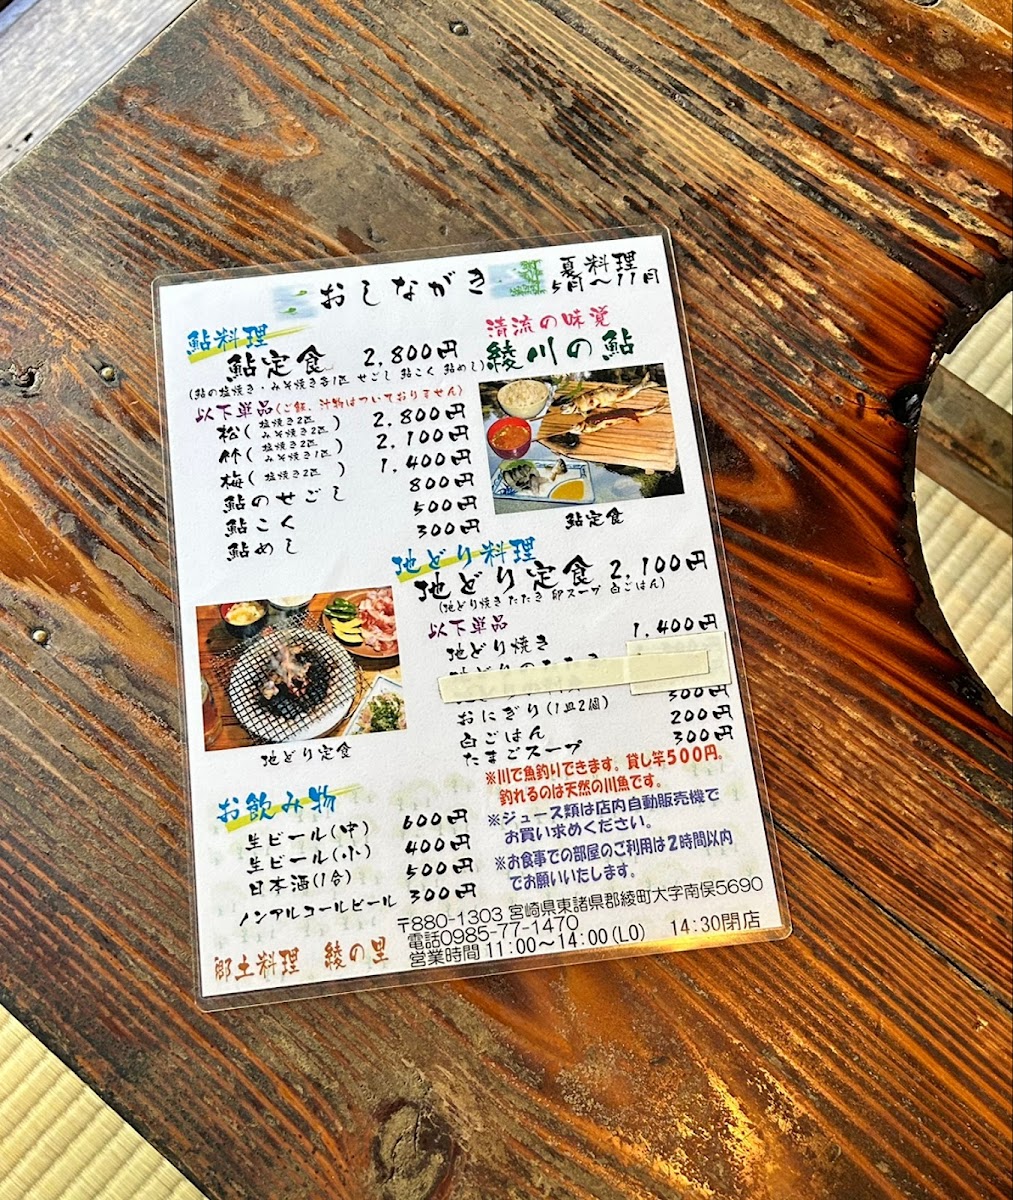 おしながき
夏料理
5月〜11月
鮎料理
鮎定食 2,800円
(鮎の塩焼き・みそ焼き各1匹 せごし 鮎こく 鮎めし)
以下単品(ご飯、汁物はついておりません)
松(塩焼き2匹 みそ焼き2匹) 2,800円
竹(塩焼き2匹 みそ焼き1匹) 2,100円
梅(塩焼き2匹) 1,400円
鮎のせごし 800円
鮎こく 500円
鮎めし 300円
清流の味覚
綾川の鮎
鮎定食
地どり料理
地どり定食 2,100円
(地どり焼き たたき 卵スープ 白ごはん)
以下単品
地どり焼き 1,400円
おにぎり(1皿2個) 300円
白ごはん 200円
たまごスープ 300円
地どり定食
※川で魚釣りできます。貸し竿500円。
釣れるのは天然の川魚です。
※ジュース類は店内自動販売機で
お買い求めください。
※お食事での部屋のご利用は2時間以内
でお願いいたします。
お飲み物
生ビール(中) 600円
生ビール(小) 400円
日本酒(1合) 500円
ノンアルコールビール 300円
郷土料理 綾の里
〒880-1303 宮崎県東諸県郡綾町大字南俣5690
電話0985-77-1470
営業時間 11:00〜14:00(LO) 14:30閉店